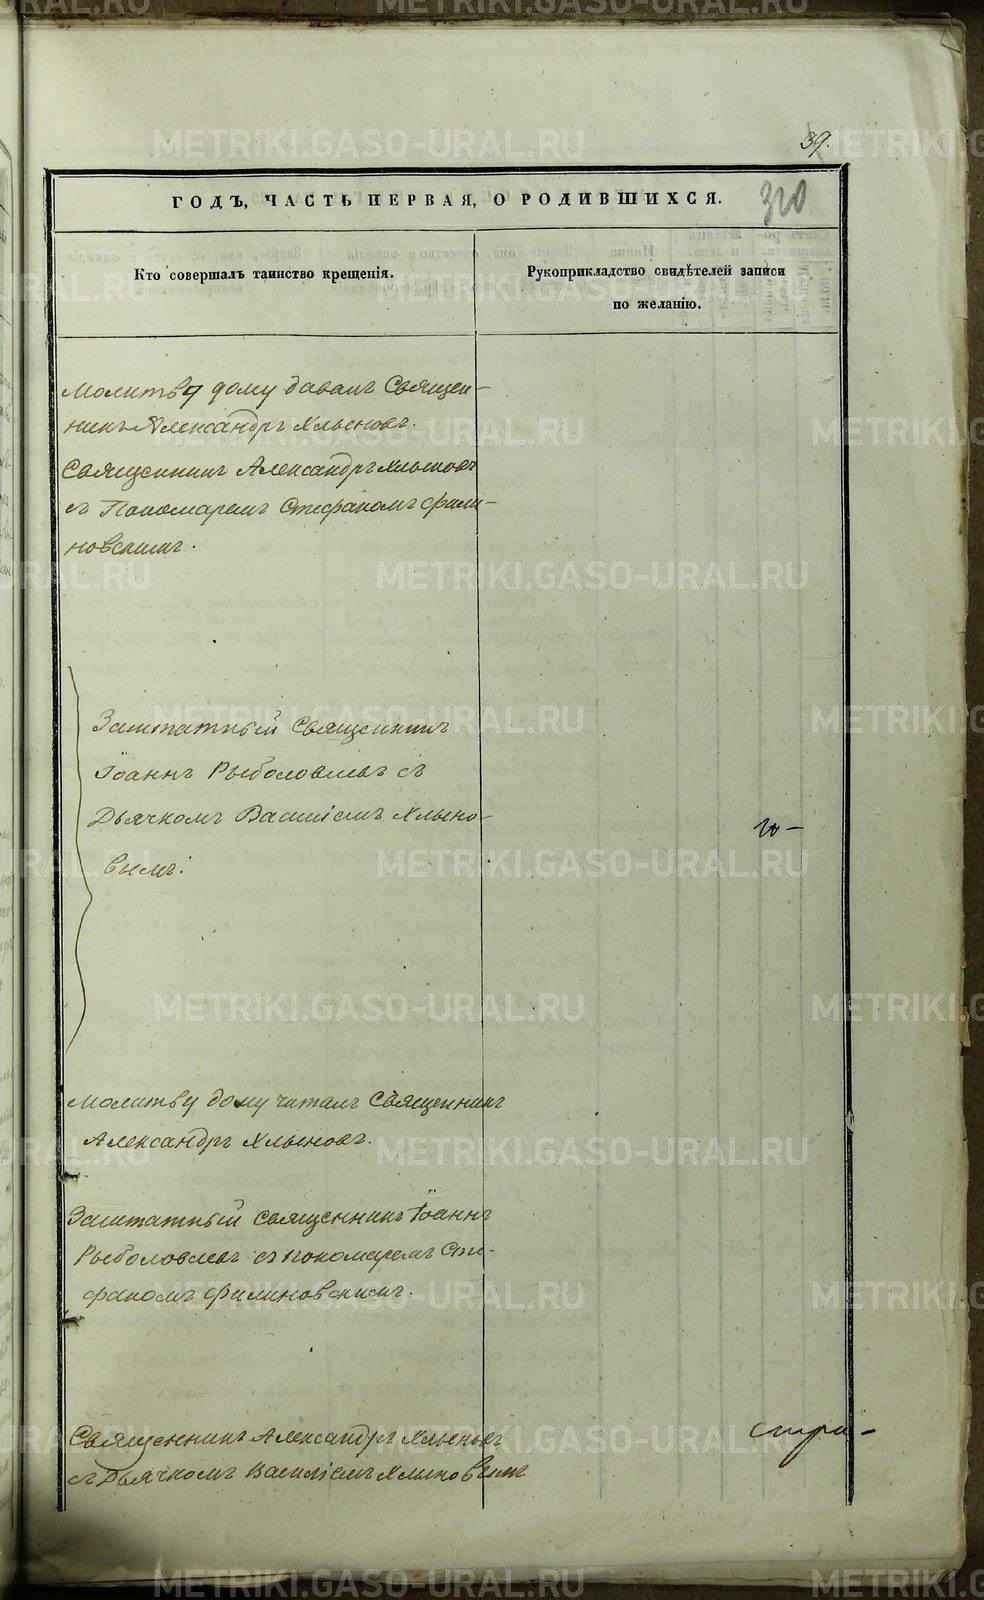 39.
320
ГОДЪ, ЧАСТЬ ПЕРВАЯ, О РОДИВШИХСЯ.
Кто совершалъ таинство крещенія.
Рукоприкладство свидѣтелей записи
по желанію.
Молитву дому давалъ Священ-
никъ Александръ Хлыновъ.
Священникъ Александръ Хлыновъ
съ Пономаремъ Стефаномъ Фили-
новскимъ.
Заштатный Священникъ
Іоаннъ Рыболовлевъ съ
Дьячкомъ Василіемъ Хлыно-
вымъ.
Молитву дому читалъ Священникъ
Александръ Хлыновъ.
Заштатный Священникъ Іоаннъ
Рыболовлевъ съ Пономаремъ Сте-
фаномъ Филиновскимъ.
Священникъ Александръ Хлыновъ
съ Дьячкомъ Василіемъ Хлыновымъ
METRIKI.GASO-URAL.RU